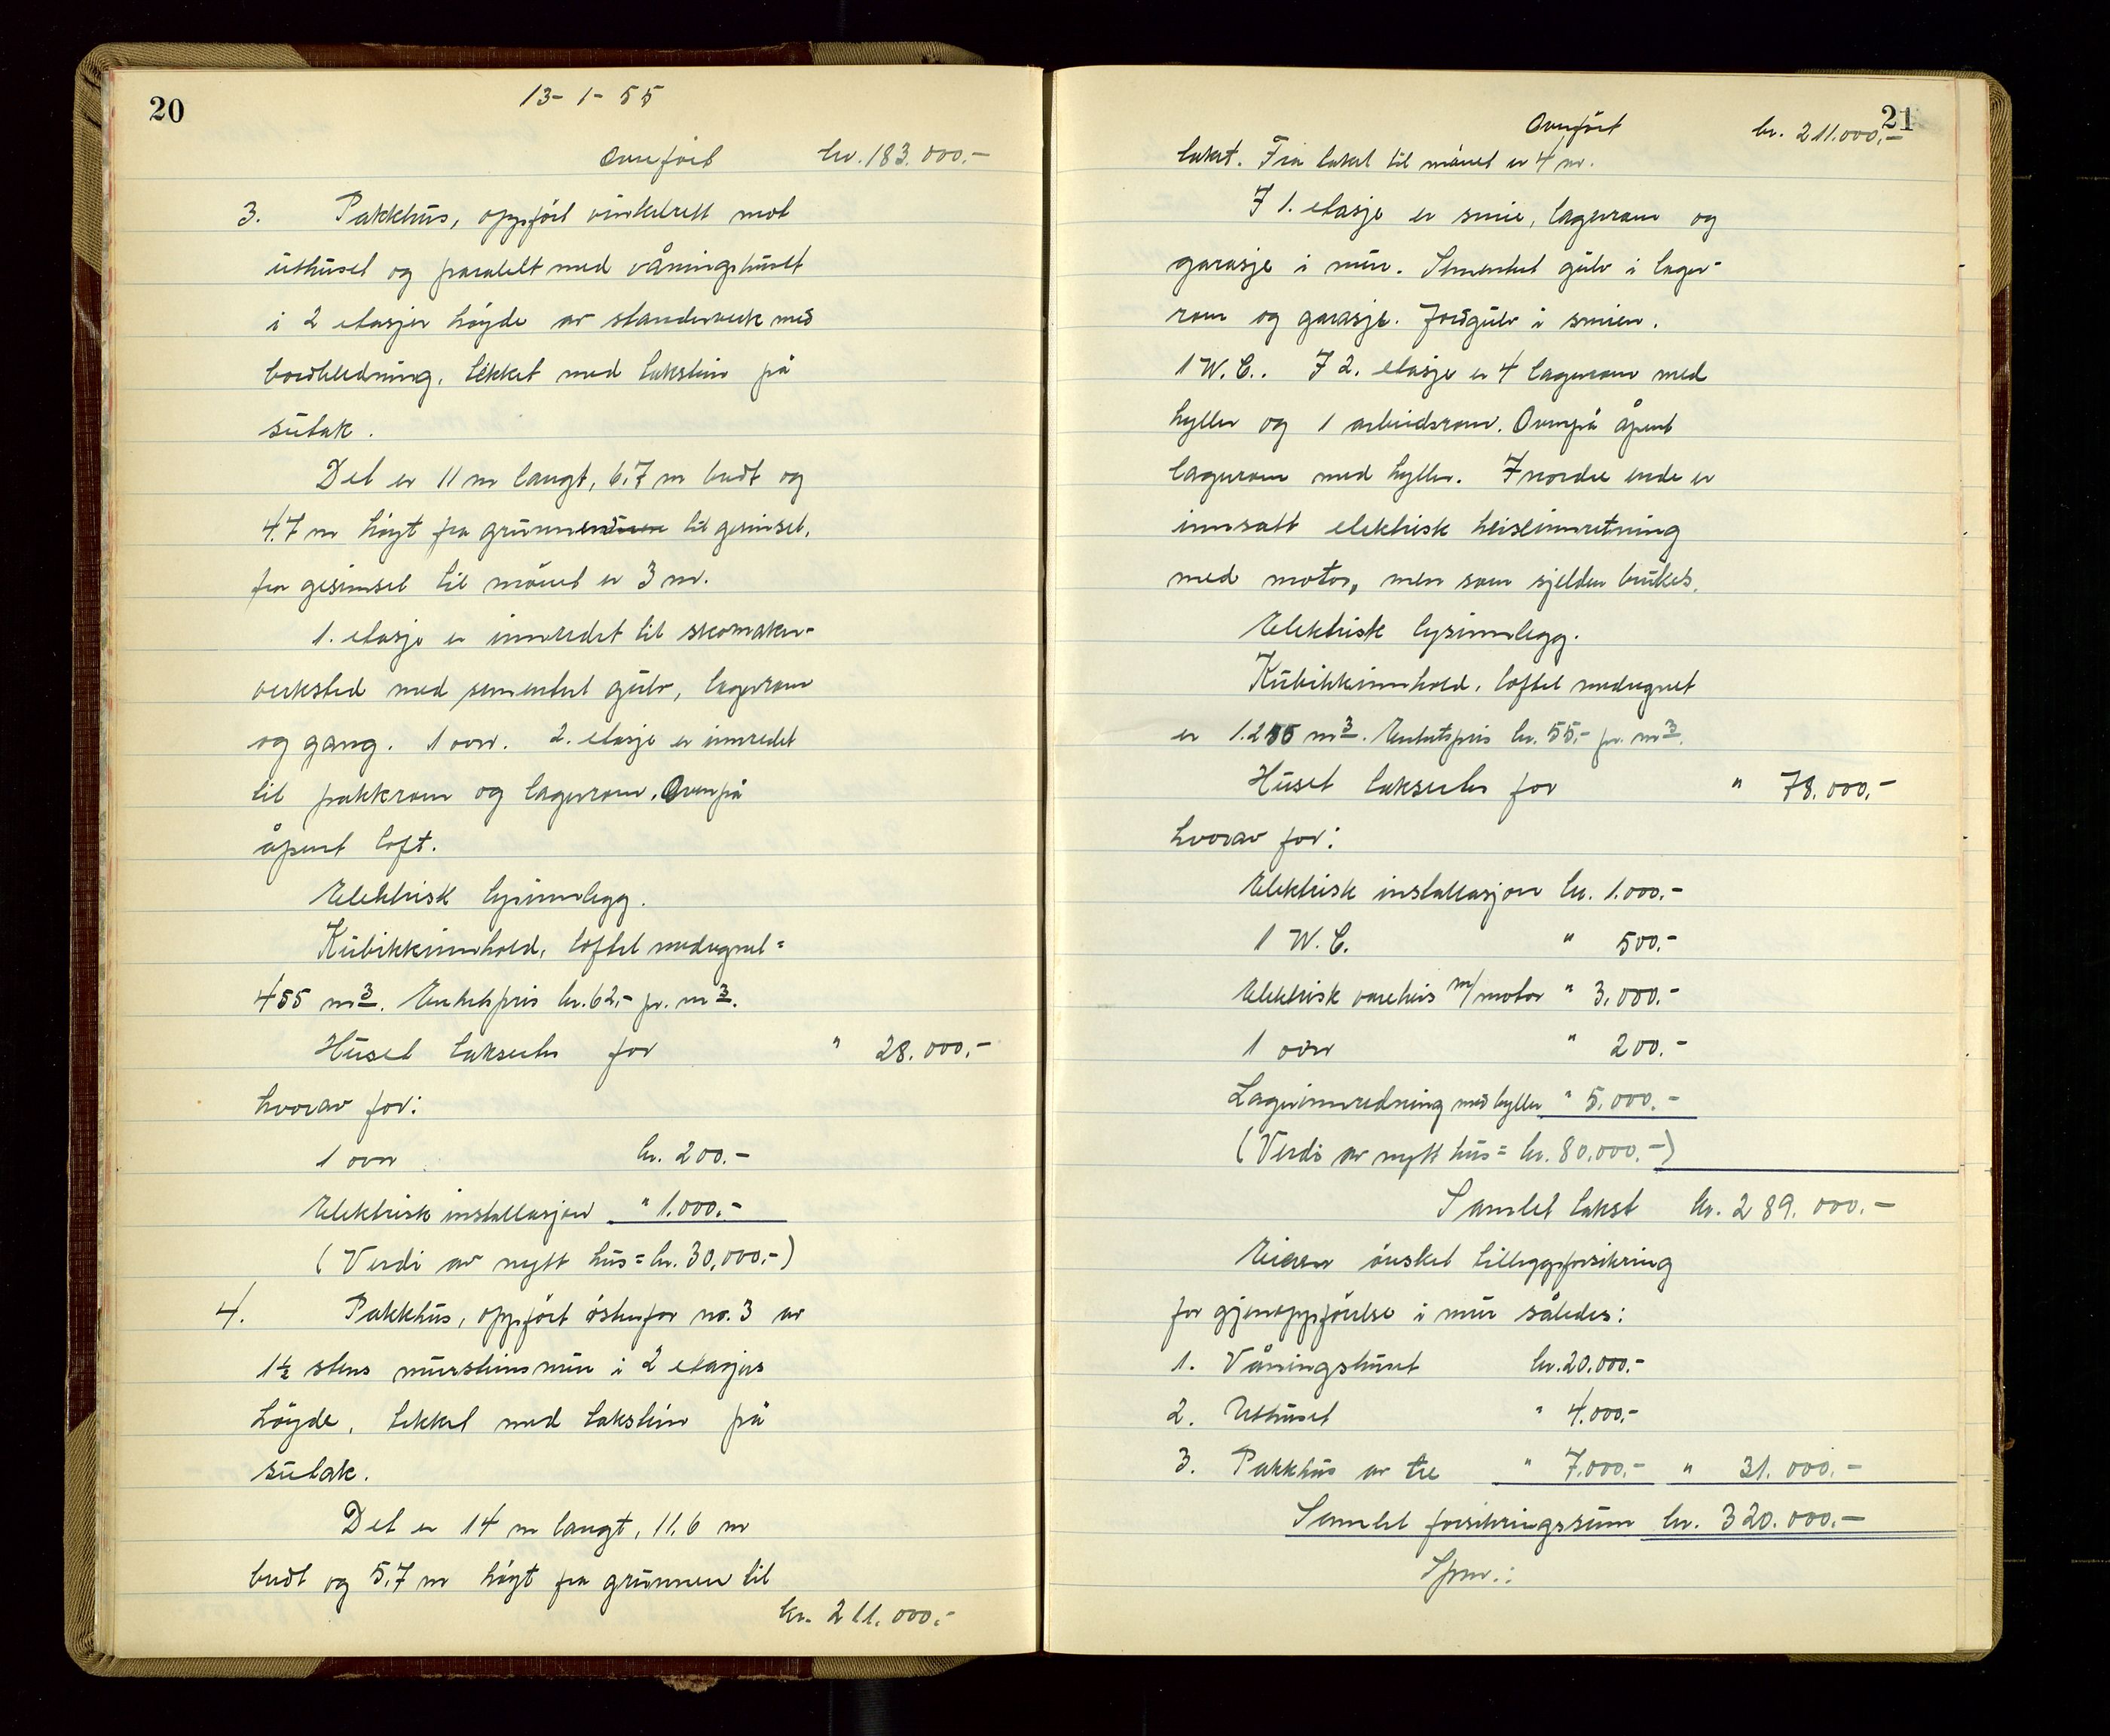 20
13-1-55
Overført kr. 183.000.-
3. Pakkhus, oppført vinkelrett mot
uthuset og paralelt med våningshuset
i 2 etasjer høyde av standerverk med
bordkledning, tekket med takstein på
sutak.
Det er 11 m langt, 6,7 m bredt og
4,7 m høyt fra grunnen til gesimset,
fra gesimset til mønet er 3 m.
1. etasje er innredet til skomaker-
verksted med sementert gulv, lagerrom
og gang. 1 ovn. 2. etasje er innredet
til pakkrom og lagerrom. Ovenpå
åpent loft.
Elektrisk lysinnlegg.
Kubikkinnhold, loftet medregnet =
455 m3. Enhetspris kr. 62,- pr. m3.
Huset takseres for " 28.000.-
hvorav for:
1 ovn kr. 200.-
Elektrisk installasjon " 1.000.-
(Verdi av nytt hus = kr. 30,000.-)
4. Pakkhus, oppført østenfor no. 3 av
1½ stens mursteinsmur i 2 etasjers
høyde, tekket med takstein på
sutak.
Det er 14 m langt, 11,6 m
bredt og 5,7 m høyt fra grunnen til
kr. 211.000.-
21
Overført kr. 211.000,-
taket. Fra taket til mønet er 4 m.
I 1. etasje er smie, lagerrom og
garasje i mur. Sementert gulv i lager-
rom og garasje. Jordgulv i smien.
1 W.C.. I 2. etasje er 4 lagerrom med
hyller og 1 arbeidsrom. Ovenpå åpent
lagerrom med hyller. I nordre ende er
innsatt elektrisk heiseinnretning
med motor, men som sjelden brukes.
Elektrisk lysinnlegg.
Kubikkinnhold, loftet medregnet
er 1.255 m3. Enhetspris kr. 55.- pr. m3.
Huset takseres for " 78.000,-
hvorav for:
Elektrisk installasjon kr. 1.000.-
1 W.C. " 500.-
Elektrisk vareheis m/motor " 3.000.-
1 ovn " 200.-
Lagerinnredning med hyller " 5.000.-
(Verdi av nytt hus = kr. 80.000.-)
Samlet takst kr. 289.000.-
Eieren ønsket tilleggsforsikring
for gjenoppførelse i mur således:
1. Våningshuset kr. 20.000.-
2. Uthuset " 4.000.-
3. Pakkhus av tre " 7.000.- " 31.000.-
Samlet forsikringssum kr. 320.000.-
Spm.: